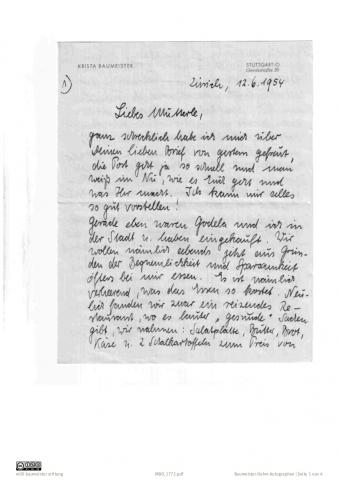 KRISTA BAUMEISTER
STUTTGART-O
1)
Zürich, 12.6.1954
Liebes Mutterle,
ganz schrecklich habe ich mich über
Deinen lieben Brief von gestern gefreut,
die Post geht ja so schnell und man
weiß im Nu, wie es Euch geht und
was Ihr macht. Ich kann mir alles
so gut vorstellen!
Gerade eben waren Godela und ich in
der Stadt u. haben eingekauft. Wir
wollen nämlich abends jetzt aus Grün-
den der Bequemlichkeit und Sparsamkeit
öfters bei mir essen. Es ist nämlich
verheerend, was das Essen so kostet. Neu-
lich fanden wir zwar ein reizendes Re-
staurant, wo es lauter "gesunde" Sachen
gibt, wir nahmen: Salatplatte, Butter, Brot,
Käse u. 2 Schalkartoffeln zum Preis von
willi baumeister stiftung
Baumeister-Rehm Autographen | Seite 1 von 4